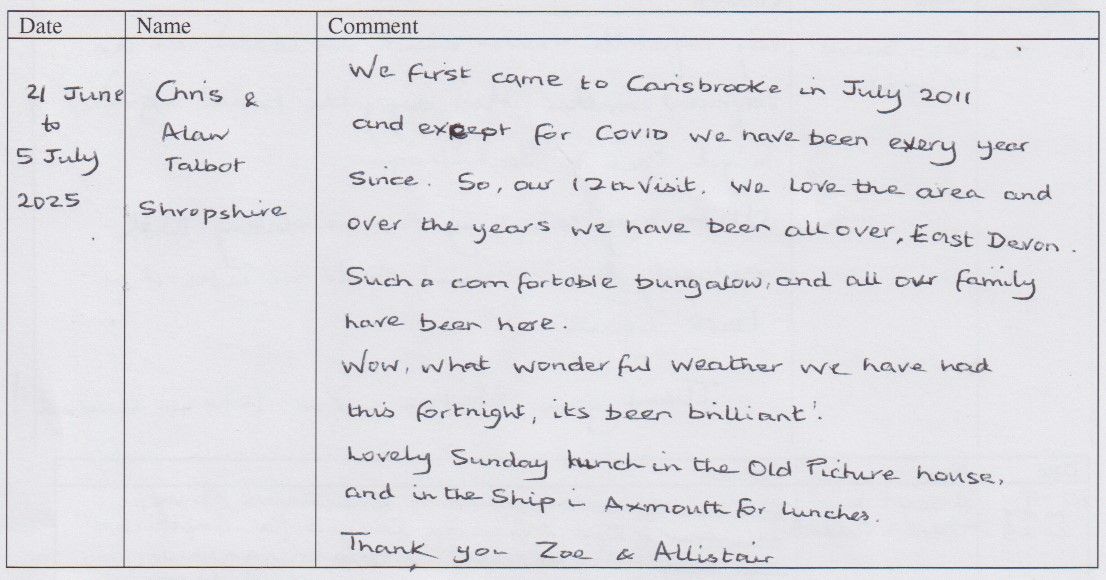 Date Name Comment
21 June
to
5 July
2025
Chris &
Alan
Talbot
Shropshire
We first came to Carisbrooke in July 2011
and except for Covid we have been every year
since. So, our 12th visit. We love the area and
over the years we have been all over, East Devon.
Such a comfortable bungalow, and all our family
have been here.
Wow, what wonderful weather we have had
this fortnight, its been brilliant!
Lovely Sunday lunch in the Old Picture house,
and in the Ship in Axmouth for lunches.
Thank you Zoe & Allistair